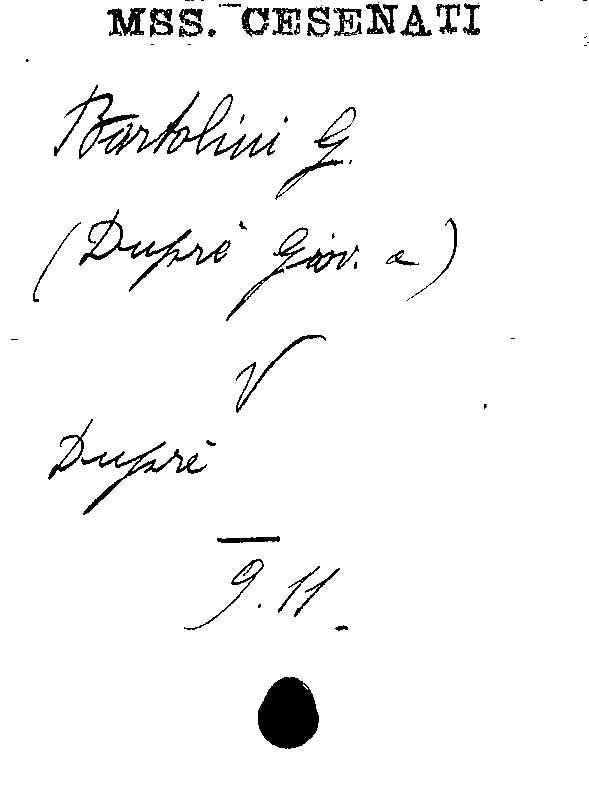 MSS. CESENATI
Bartolini G.
(Duprè Giov. a)
V
Duprè
9.11